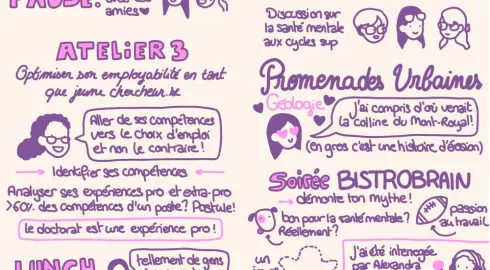 PAUSE!
amies
ATELIER 3
Optimiser son employabilité en tant
que jeune chercheur.se
Aller de ses compétences
vers le choix d'emploi
et non le contraire!
Identifier ses compétences
Analyser ses expériences pro et extra-pro
>60% des compétences d'un poste? Postule!
le doctorat est une expérience pro!
LUNCH
tellement de gens
Discussion sur
la santé mentale
aux cycles sup
Promenades Urbaines
Géologie
J'ai compris d'où venait
la colline du Mont-Royal!
(en gros c'est une histoire d'érosion)
Soirée BISTROBRAIN
démonte ton mythe!
bon pour la santé mentale?
Réellement?
passion
au travail
un
J'ai été interrogée
par Alexandra